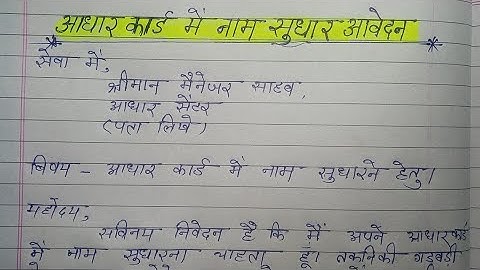 आधार कार्ड में नाम सुधार आवेदन
सेवा में,
श्रीमान मैनेजर साहब,
आधार सेंटर
(पता लिखे)
विषय - आधार कार्ड में नाम सुधारने हेतु।
महोदय,
सविनय निवेदन है कि मैं अपने आधारकार्ड
में नाम सुधारना चाहता हूं। तकनिकी गड़बड़ी